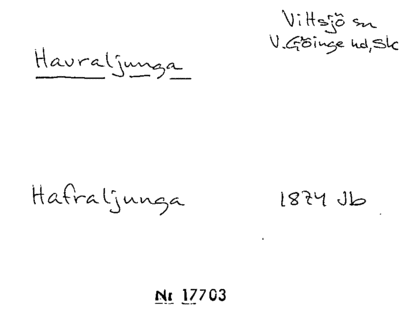 Vittsjö sn
Havraljunga
V. Göinge hd, Sk
Hafraljunga 1874 Jb
Nr 17703